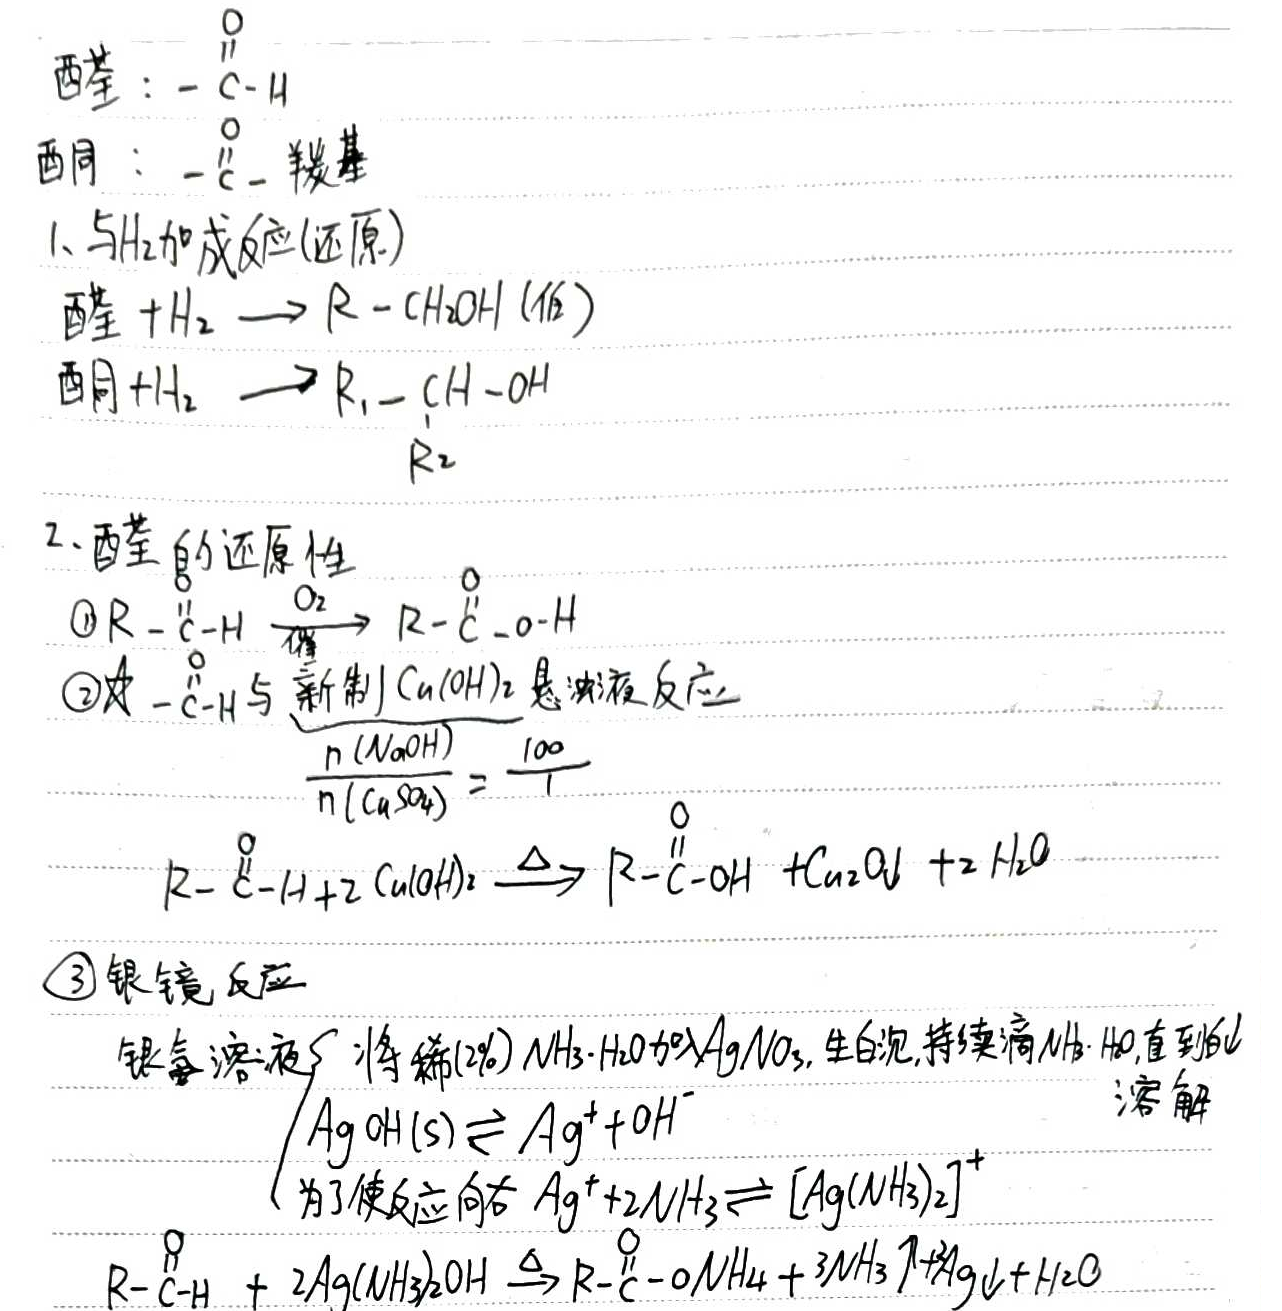 醛：-C(=O)-H
酮：-C(=O)- 羰基
1、与H₂加成反应(还原)
醛+H₂ → R-CH₂OH (伯)
酮+H₂ → R₁-CH-OH
R₂
2、醛的还原性
① R-C(=O)-H —O₂/催→ R-C(=O)-O-H
②☆ -C(=O)-H与新制Cu(OH)₂悬浊液反应
n(NaOH)/n(CuSO₄) = 100/1
R-C(=O)-H+2Cu(OH)₂ —△→ R-C(=O)-OH +Cu₂O↓ +2H₂O
③银镜反应
银氨溶液{ 将稀(2%)NH₃·H₂O加入AgNO₃,生白沉,持续滴NH₃·H₂O,直到白↓
溶解
AgOH(s)⇌Ag⁺+OH⁻
为了使反应向右 Ag⁺+2NH₃⇌[Ag(NH₃)₂]⁺
R-C(=O)-H + 2Ag(NH₃)₂OH —△→ R-C(=O)-ONH₄+3NH₃↑+2Ag↓+H₂O